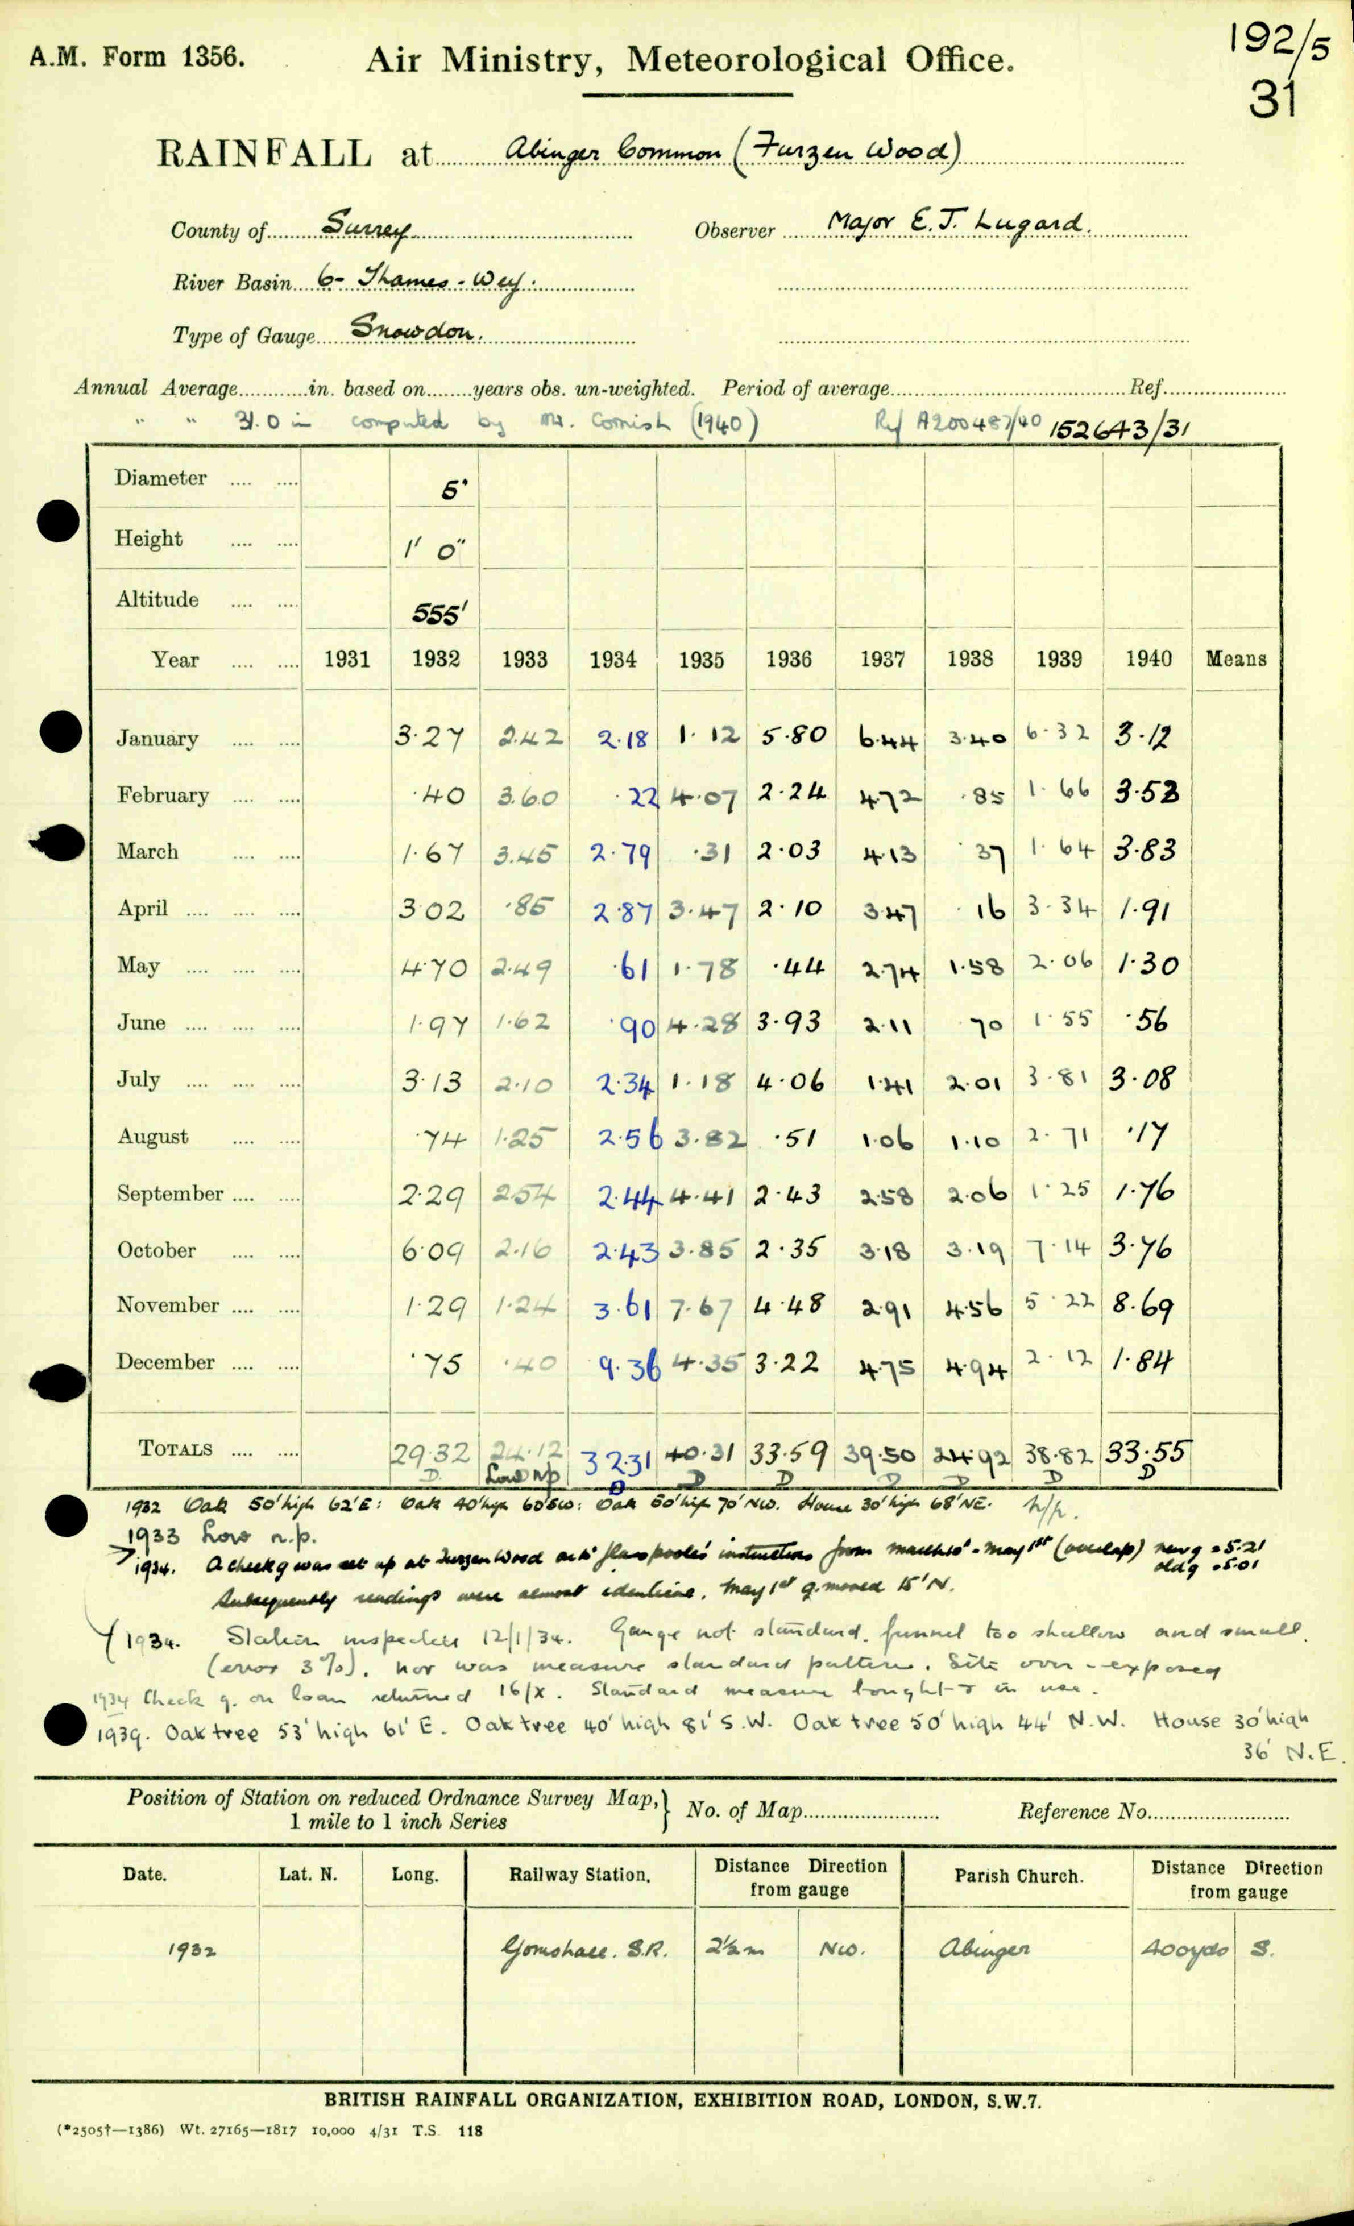 192/5
A.M. Form 1356. Air Ministry, Meteorological Office.
31
RAINFALL at Abinger Common (Furzen Wood)
County of Surrey Observer Major E. J. Lugard.
River Basin 6- Thames - Wey.
Type of Gauge Snowdon.
Annual Average............in. based on........years obs. un-weighted. Period of average............Ref............
" " 31.0 in computed by Mr. Cornish (1940) Ref A200487/40 152643/31
Diameter .... .... 5"
Height .... .... 1' 0"
Altitude .... .... 555'
Year .... .... 1931 1932 1933 1934 1935 1936 1937 1938 1939 1940 Means
January .... .... 3·27 2.42 2.18 1.12 5.80 6.44 3.40 6.32 3.12
February .... .... ·40 3.60 .22 4.07 2.24 4.72 .85 1.66 3.53
March .... .... 1.67 3.45 2.79 .31 2.03 4.13 .37 1.64 3.83
April .... .... .... 3.02 .85 2.87 3.47 2.10 3.47 .16 3.34 1.91
May .... .... .... 4.70 2.49 .61 1.78 .44 2.74 1.58 2.06 1.30
June .... .... .... 1.97 1.62 .90 4.28 3.93 2.11 .70 1.55 .56
July .... .... .... 3.13 2.10 2.34 1.18 4.06 1.41 2.01 3.81 3.08
August .... .... .74 1.25 2.56 3.82 .51 1.06 1.10 2.71 .17
September .... .... 2.29 2.54 2.44 4.41 2.43 2.58 2.06 1.25 1.76
October .... .... 6.09 2.16 2.43 3.85 2.35 3.18 3.19 7.14 3.76
November .... .... 1.29 1.24 3.61 7.67 4.48 2.91 4.56 5.22 8.69
December .... .... .75 .40 9.36 4.35 3.22 4.75 4.94 2.12 1.84
TOTALS .... .... 29.32 24.12 32.31 40.31 33.59 39.50 24.92 38.82 33.55
D Low n/p D D D D D D D
1932 Oak 50' high 62' E: Oak 40' high 60' SW: Oak 50' high 70' NW. House 30' high 68' NE. n/p.
1933 Low n.p.
1934. A check g was set up at Furzen Wood instructions from March 10 - May 1st (overlap) new g = 5.21
old g = 5.01
Subsequently readings were almost identical. May 1st g. moved 15' N.
1934. Station inspected 12/1/34. Gauge not standard. funnel too shallow and small.
(error 3%). nor was measure standard pattern. Site over-exposed
1934 Check g. on loan returned 16/X. Standard measure bought & in use.
1939. Oak tree 53' high 61' E. Oak tree 40' high 81' S.W. Oak tree 50' high 44' N.W. House 30' high
36' N.E.
Position of Station on reduced Ordnance Survey Map,} No. of Map............ Reference No............
1 mile to 1 inch Series
Date. Lat. N. Long. Railway Station. Distance Direction from gauge Parish Church. Distance Direction from gauge
1932 Gomshall. S.R. 2½m NW. Abinger 400yds S.
BRITISH RAINFALL ORGANIZATION, EXHIBITION ROAD, LONDON, S.W.7.
(*2505†—1386) Wt. 27165—1817 10,000 4/31 T.S. 118